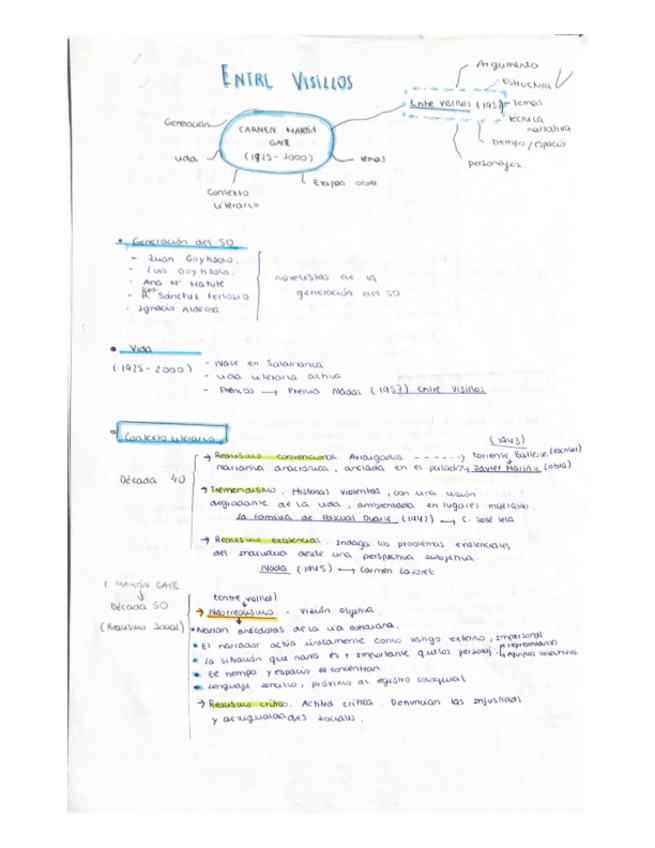 ENTRE VISILLOS
Argumento
Estructura
Entre visillos (1957)
temas
técnica
narrativa
tiempo/espacio
personajes.
Generación
CARMEN MARTÍN
GAITE
(1925-2000)
vida
temas
Etapas obra
Contexto
literario
• Generación del 50
- Juan Goytisolo.
- Luis Goytisolo.
- Ana Mª Matute
- R. Sánchez Ferlosio
- Ignacio Aldecoa
novelistas de la
generación del 50
• Vida
(1925-2000)
- Nace en Salamanca
- vida literaria activa
- Premios → Premio Nadal (1957) Entre Visillos
• Contexto literario
(1943)
Década 40
→ Realismo convencional. Arraigados. ------→ Torrente Ballester (escritor)
narrativa anacrónica, anclada en el pasado → Javier Mariño (obra)
→ Tremendismo. Historias violentas, con una visión
degradante de la vida, ambientada en lugares miserables.
La familia de Pascual Duarte (1942) → C. José Cela
→ Realismo existencial. Indaga los problemas existenciales
del individuo desde una perspectiva subjetiva.
Nada (1945) → Carmen Laforet
C. MARTÍN GAITE
↓
Década 50
(Realismo Social)
(entre visillos)
→ Neorrealismo. Visión objetiva.
• Narran anécdotas de la vida cotidiana.
• El narrador actúa únicamente como testigo externo, impersonal
• La situación que narra es + importante que los personaj.
• El tiempo y espacio se concentran
• Lenguaje sencillo, próximo al registro coloquial
→ Realismo crítico. Actitud crítica. Denuncian las injusticias
y desigualdades sociales.